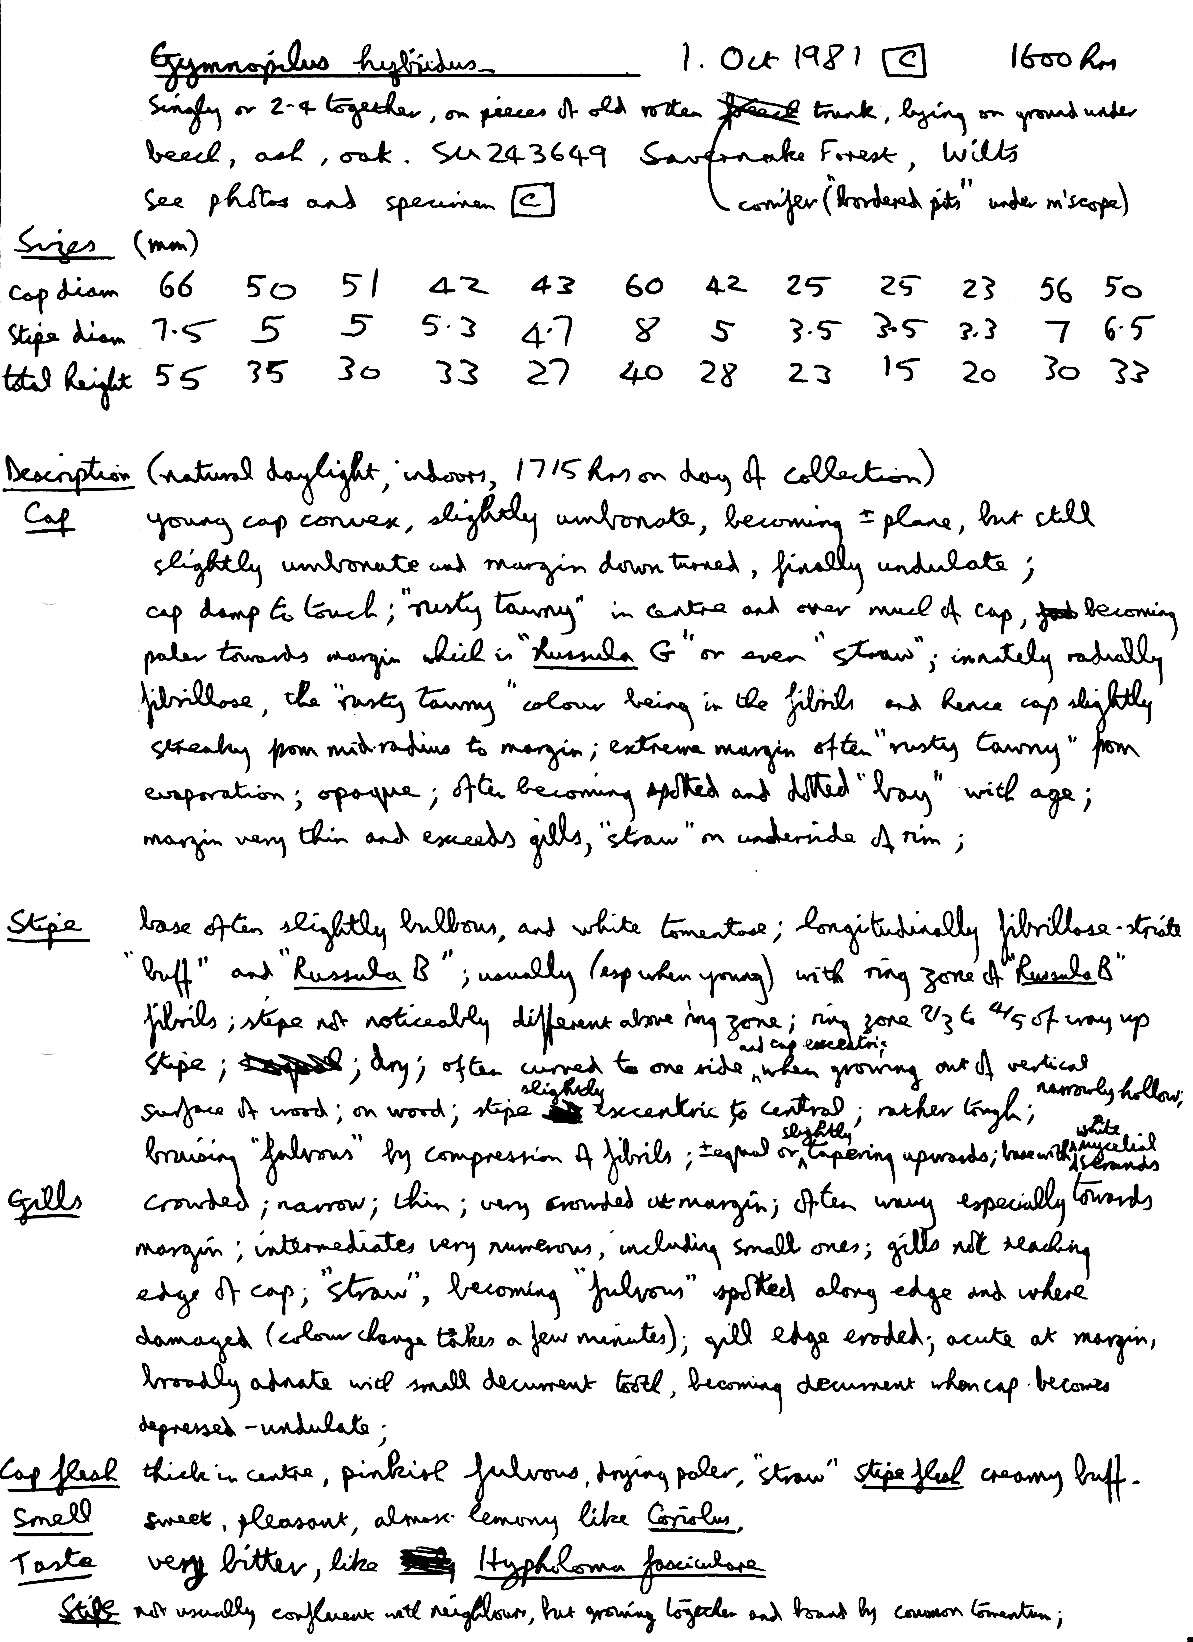 Gymnopilus hybridus 1. Oct 1981 C 1600 hrs
Singly or 2-4 together, on pieces of old rotten beech trunk, lying on ground under
beech, ash, oak. SU 243649 Savernake Forest, Wilts
see photos and specimen C conifer ("bordered pits" under m'scope)
Sizes (mm)
Cap diam 66 50 51 42 43 60 42 25 25 23 56 50
Stipe diam 7.5 5 5 5.3 4.7 8 5 3.5 3.5 3.3 7 6.5
total height 55 35 30 33 27 40 28 23 15 20 30 33
Description (natural daylight, indoors, 1715 hrs on day of collection)
Cap young cap convex, slightly umbonate, becoming ± plane, but still
slightly umbonate and margin down turned, finally undulate;
cap damp to touch; "rusty tawny" in centre and over much of cap, becoming
paler towards margin which is "Russula G" or even "straw"; innately radially
fibrillose, the "rusty tawny" colour being in the fibrils and hence cap slightly
streaky from mid-radius to margin; extreme margin often "rusty tawny" from
evaporation; opaque; often becoming spotted and dotted "bay" with age;
margin very thin and exceeds gills, "straw" on underside of rim;
Stipe base often slightly bulbous, and white tomentose; longitudinally fibrillose-striate
"buff" and "Russula B"; usually (esp when young) with ring zone of "Russula B"
fibrils; stipe not noticeably different above ring zone; ring zone 2/3 to 4/5 of way up
stipe; ; dry; often curved to one side and cap excentric when growing out of vertical
surface of wood; on wood; stipe slightly excentric to central; rather tough; narrowly hollow;
bruising "fulvous" by compression of fibrils; ± equal or slightly tapering upwards; base with white mycelial strands
Gills crowded; narrow; thin; very crowded at margin; often wavy especially towards
margin; intermediates very numerous, including small ones; gills not reaching
edge of cap; "straw", becoming "fulvous" spotted along edge and where
damaged (colour change takes a few minutes); gill edge eroded; acute at margin,
broadly adnate with small decurrent tooth, becoming decurrent when cap becomes
depressed-undulate;
Cap flesh thick in centre, pinkish fulvous, drying paler, "straw" Stipe flesh creamy buff.
Smell sweet, pleasant, almost lemony like Coriolus,
Taste very bitter, like Hypholoma fasciculare
Stipe not usually confluent with neighbours, but growing together and bound by common tomentum;